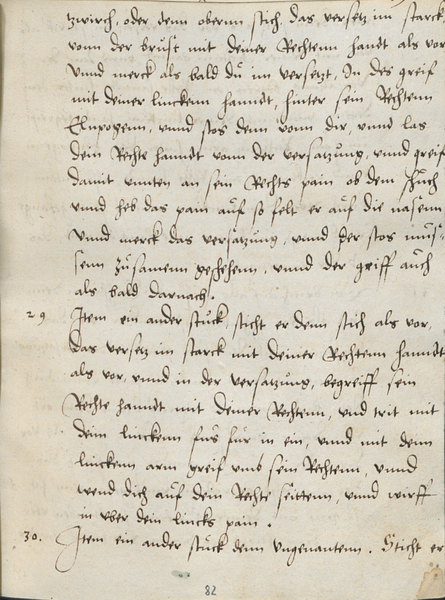 tzwirch, oder denn obernn stich, das versetz im starck
vonn der brust mit deiner Rechtenn handt als vor
Vnnd merck als bald du im versetzt, In des greif
mit deiner linckenn hanndt, hinter sein Rechtenn
Elnpogenn, vnnd stos denn vonn dir, vnnd las
dein Rechte hanndt vonn der versatzung, vnnd greif
damit vnnten an sein Rechts pain ob dem schuch
vnnd heb das pain auf so felt er auf die nasenn
Vnnd merck das versatzung, vnnd der stos mus-
senn zusamenn geschehenn, vnnd der griff auch
als bald darnach.
29 Item ein ander stuck sticht er denn stich als vor,
das versetz im starck mit deiner Rechtenn hanndt
als vor, vnnd in der versatzung, begreiff sein
Rechte hanndt mit deiner Rechtenn, vnd trit mit
dein linckenn fus fur in ein, vnnd mit dein
linckenn arm greif vmb sein Rechtenn, vnnd
wend dich auf dein Rechte seittenn, vnnd wirff
in vber dein lincks pain.
30. Item ein ander stuck denn Vngenantenn. Sticht er
82